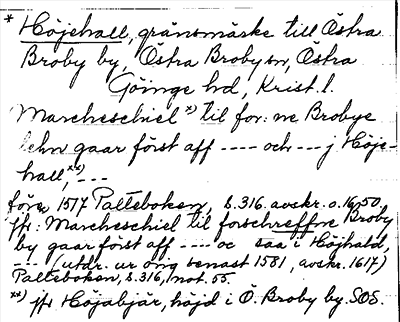 * Höjehall, gränsmärke till Östra
Broby by, Östra Broby sn, Östra
Göinge hd, Krist. l.
Marcheschiel *) til for:ne Brobye
lehn gaar först aff ---- och --- j Höje-
hall, **) ---
före 1517 Palteboken, s. 316. avskr. o. 1650.
jfr: Marcheschiel til forschreffne Broby
by gaar först aff ---- oc saa i Höjhald,
--- (utdr. ur orig senast 1581, avskr. 1617)
Palteboken, s. 316, not. 55.
**) jfr Höjabjär, höjd i Ö. Broby by. SOS.